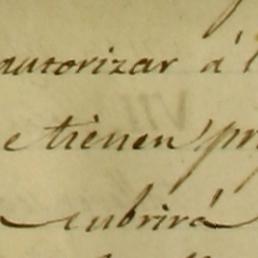 autorizar á
e tienen pr
cubrirá